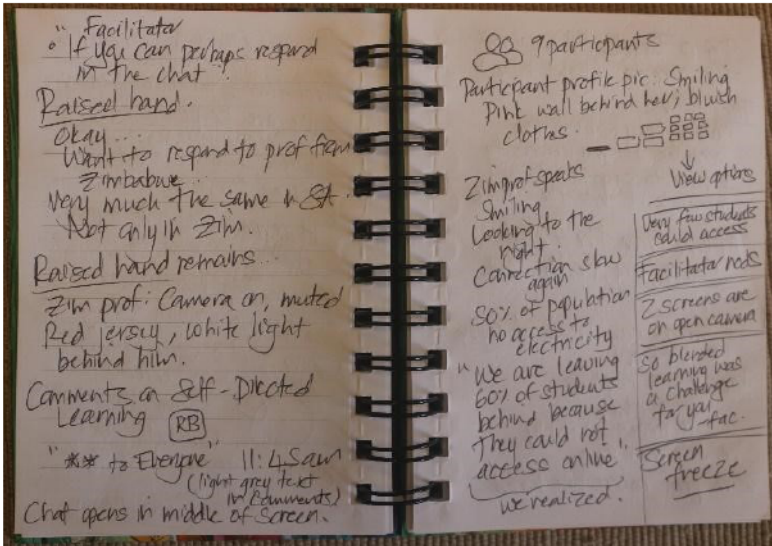 " Facilitator
If you can perhaps respond
in the chat "
Raised hand.
Okay...
Want to respond to prof from
Zimbabwe
Very much the same in SA.
Not only in Zim.
Raised hand remains...
Zim prof: Camera on, muted
Red jersey, white light
behind him.
Comments on Self-Directed
Learning RB
"** to Everyone" 11:45am
(light grey text
in comments)
Chat opens in middle of screen.
9 participants
Participant profile pic: Smiling
Pink wall behind her; bluish
clothes.
View options
Zim prof speaks
Smiling
Looking to the
right.
Connection slow
again
50% of population
no access to
electricity
"We are leaving
60% of students
behind because
they could not
access online"
we realized.
Very few students
could access
Facilitator nods
2 screens are
on open camera
So blended
learning was
a challenge
for you
-fac.
Screen
freeze